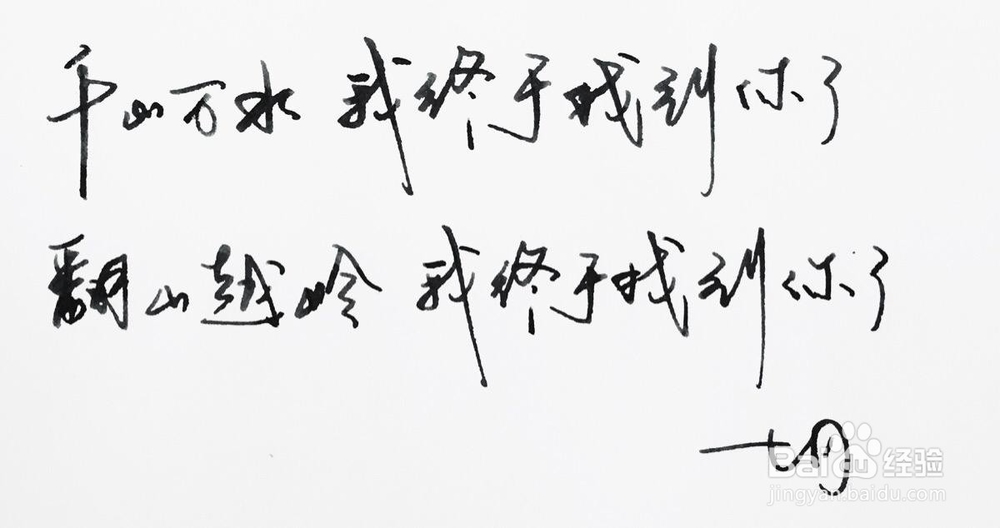 千山万水 我终于找到你了
翻山越岭 我终于找到你了
七月
Baidu 经验
jingyan.baidu.com